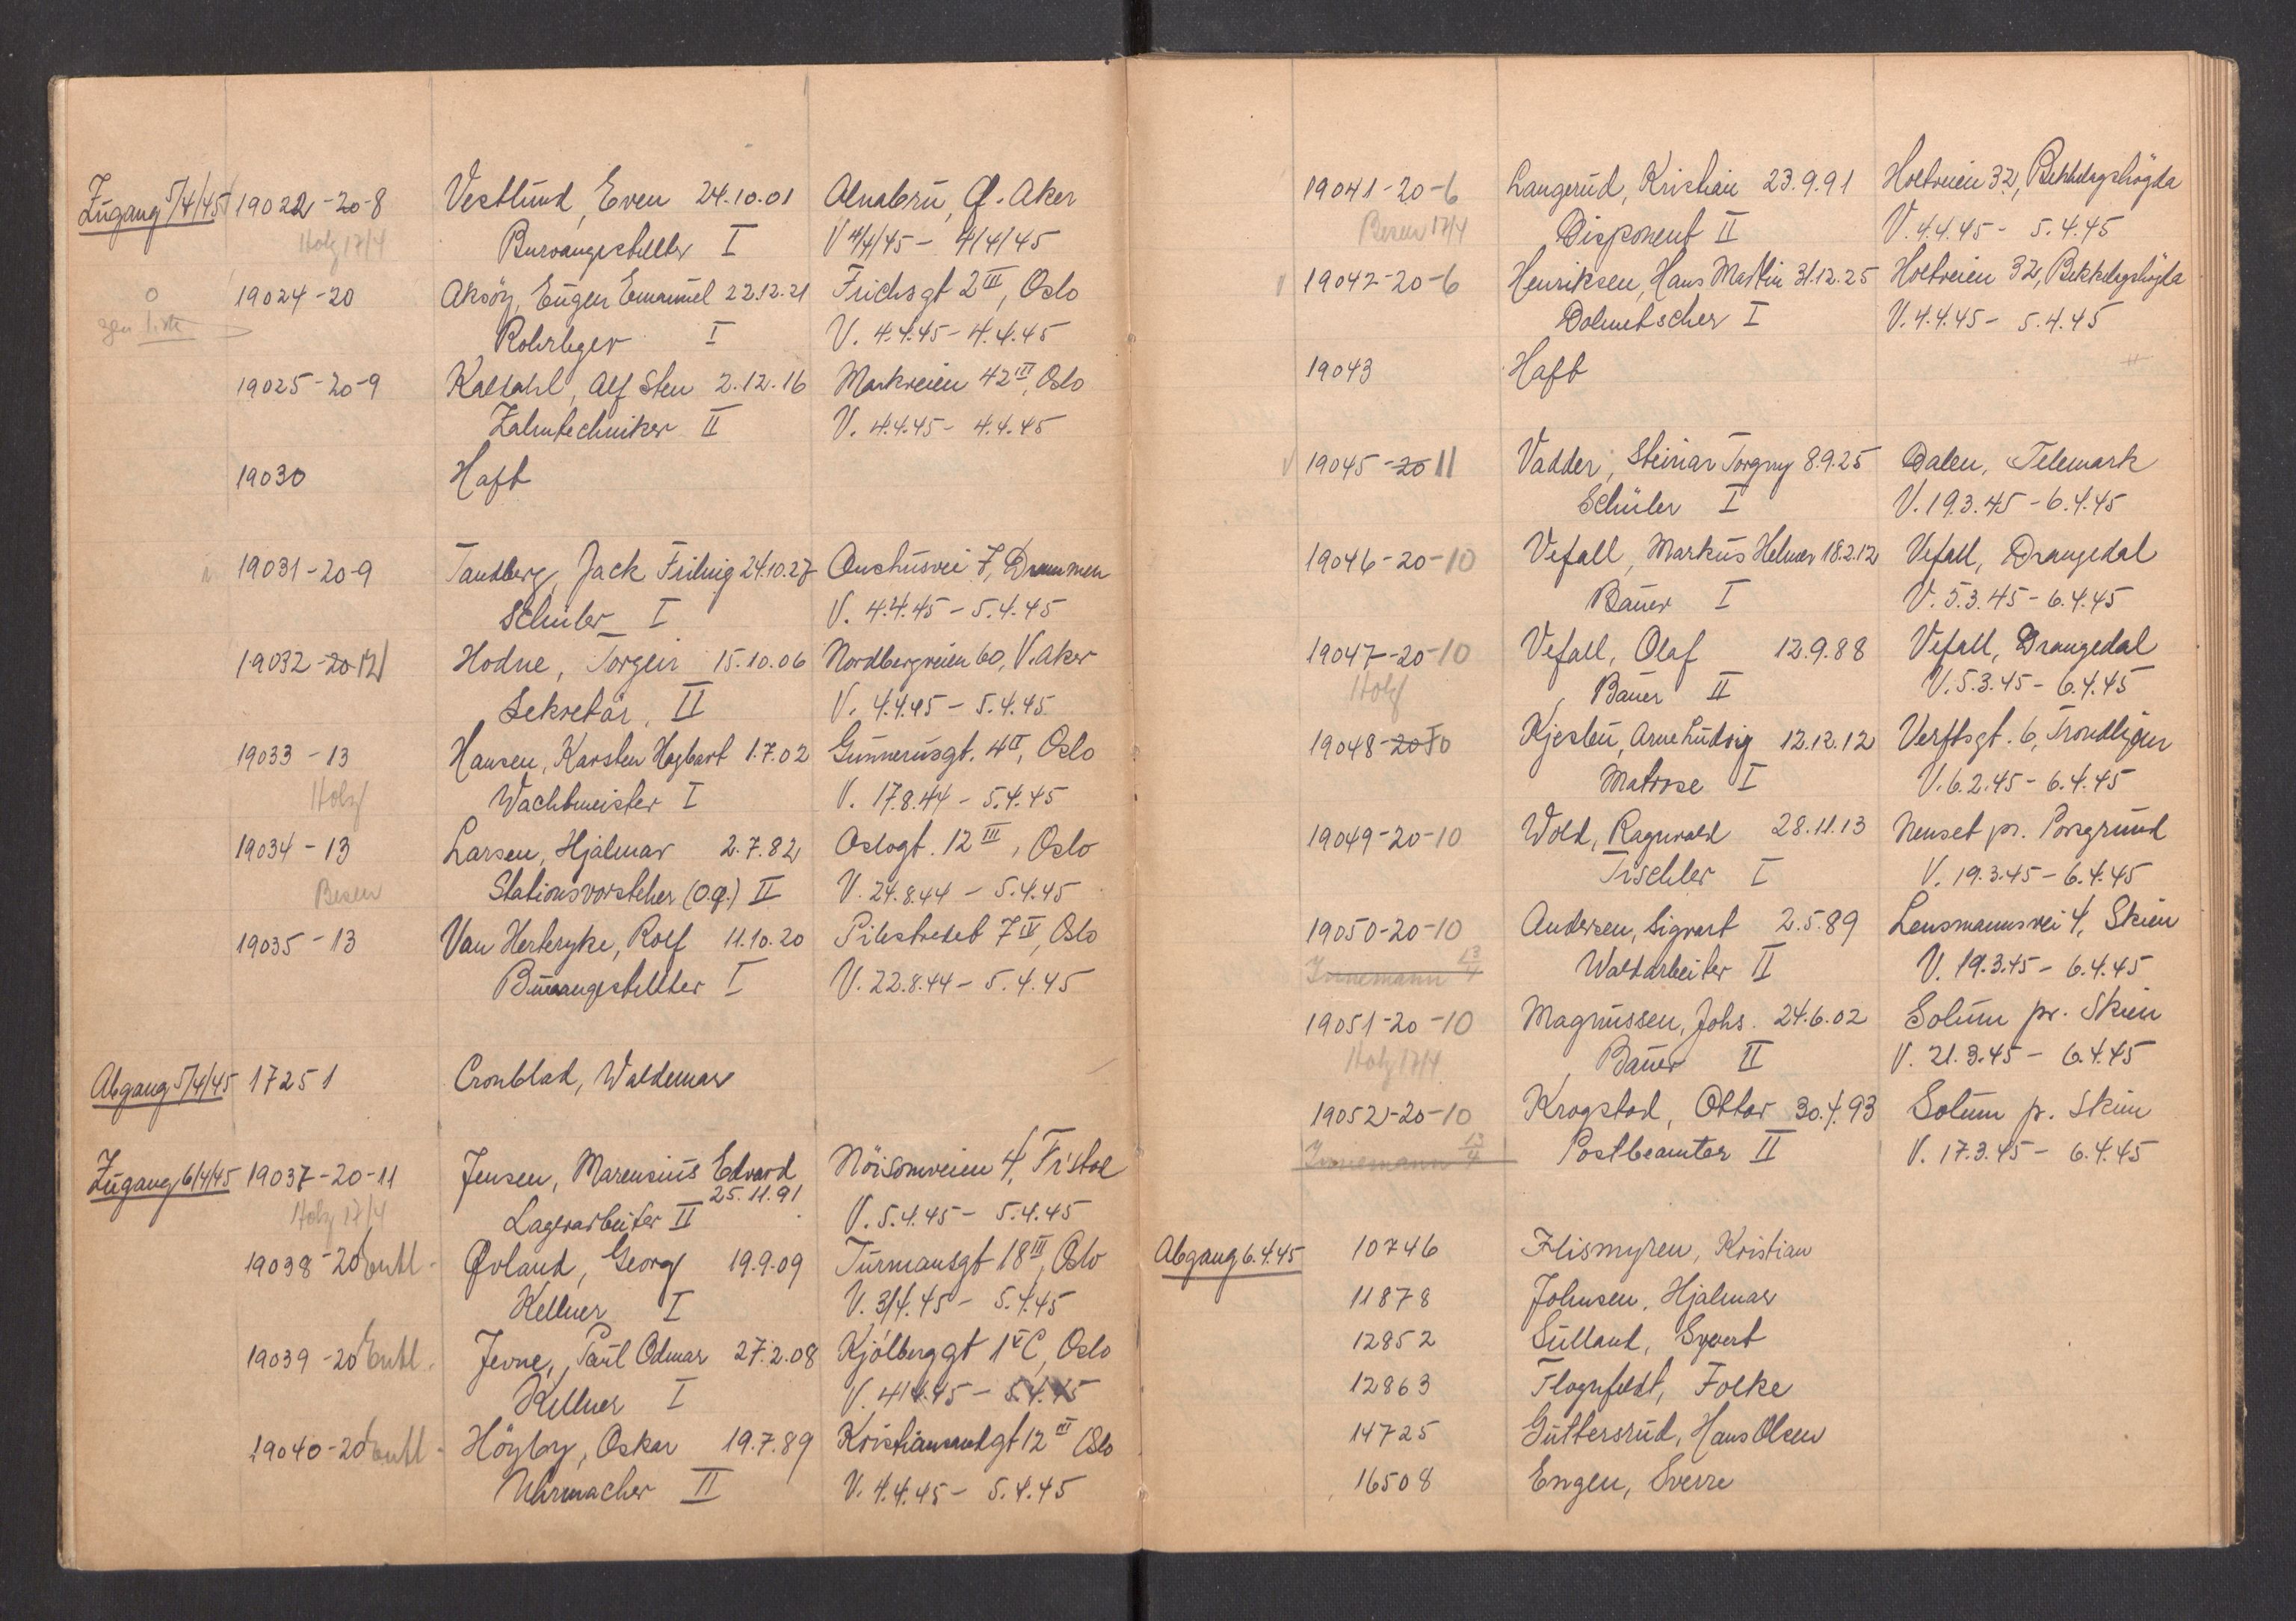 Zugang 5/4/45 19022-20-8 Vestlund, Even 24.10.01 Alnabru, Ø. Aker
Holz 17/4 Buroangestellter I V 4/4/45 - 4/4/45
19024-20 Aksöy, Eugen Emanuel 22.12.21 Frichsgt 2 III, Oslo
Rohrleger I V. 4.4.45 - 4.4.45
19025-20-9 Kaldahl, Alf Sten 2.12.16 Markveien 42 III, Oslo
Zahntechniker II V. 4.4.45 - 4.4.45
19030 Haft
19031-20-9 Tandberg, Jack 24.10.27 7, Drammen
Schüler I V. 4.4.45 - 5.4.45
19032-20 12 Hodne, Torgeir 15.10.06 Nordbergveien 60, V. Aker
Sekretär, II V. 4.4.45 - 5.4.45
19033-13 Hansen, Karsten Hagbart 1.7.02 Gunnerusgt. 4 II, Oslo
Holz Wachtmeister I V. 17.8.44 - 5.4.45
19034-13 Larsen, Hjalmar 2.7.82 Oslogt. 12 III, Oslo
Besen Stationsvorsteher II V. 24.8.44 - 5.4.45
19035-13 Van Herteryke, Rolf 11.10.20 Pilestredet 7 IV, Oslo
Büroangestellter I V. 22.8.44 - 5.4.45
Abgang 5/4/45 17251 Cronblad, Waldemar
Zugang 6/4/45 19037-20-11 Jensen, Marensius Edvard Nöisomveien 4,
25.11.91
Holz 17/4 Lagerarbeiter II V. 5.4.45 - 5.4.45
19038-20 entl. Øvland, Georg 19.9.09 18 III, Oslo
Kellner I V. 3/4.45 - 5.4.45
19039-20 entl. Jevne, Paul Odmar 27.2.08 Kjölberggt 1 C, Oslo
Kellner I V. 4/4.45 - 5.4.45
19040-20 entl. Höyby, Oskar 19.7.89 Kristiansandgt 12 III Oslo
Uhrmacher II V. 4.4.45 - 5.4.45
19041-20-6 Langerud, Kristian 23.9.91 Holtveien 32, Bekkelagshögda
Besen 17/4 Disponent II V. 4.4.45 - 5.4.45
19042-20-6 Henriksen, Hans Martin 31.12.25 Holtveien 32, Bekkelagshögda
Dolmetscher I V. 4.4.45 - 5.4.45
19043 Haft
19045-20 11 Vadder, Steinar Torgny 8.9.25 Dalen, Telemark
Schüler I V. 19.3.45 - 6.4.45
19046-20-10 Vefall, Markus Helmer 18.2.12 Vefall, Drangedal
Bauer I V. 5.3.45 - 6.4.45
19047-20-10 Vefall, Olaf 12.9.88 Vefall, Drangedal
Holz Bauer II V. 5.3.45 - 6.4.45
19048-20 Kjesbu, Arne Ludvig 12.12.12 Verftsgt. 6, Trondhjem
Matrose I V. 6.2.45 - 6.4.45
19049-20-10 Wold, Ragnvald 28.11.13 Nenset pr. Porsgrund
Tischler I V. 19.3.45 - 6.4.45
19050-20-10 Andersen, Sigvart 2.5.89 Lensmannsvei 4, Skien
13/4 Waldarbeiter II V. 19.3.45 - 6.4.45
19051-20-10 Magnussen, Johs. 24.6.02 Solum pr. Skien
Holz 17/4 Bauer II V. 21.3.45 - 6.4.45
19052-20-10 Krogstad, Ottar 30.4.93 Solum p. Skien
13/4 Postbeamter II V. 17.3.45 - 6.4.45
Abgang 6.4.45 10746 Flismyren, Kristian
11878 Johnsen, Hjalmar
12852 Sulland, Syvert
12863 Flognfeldt, Folke
14725 Guttersrud, Hans Olsen
16508 Engen, Sverre